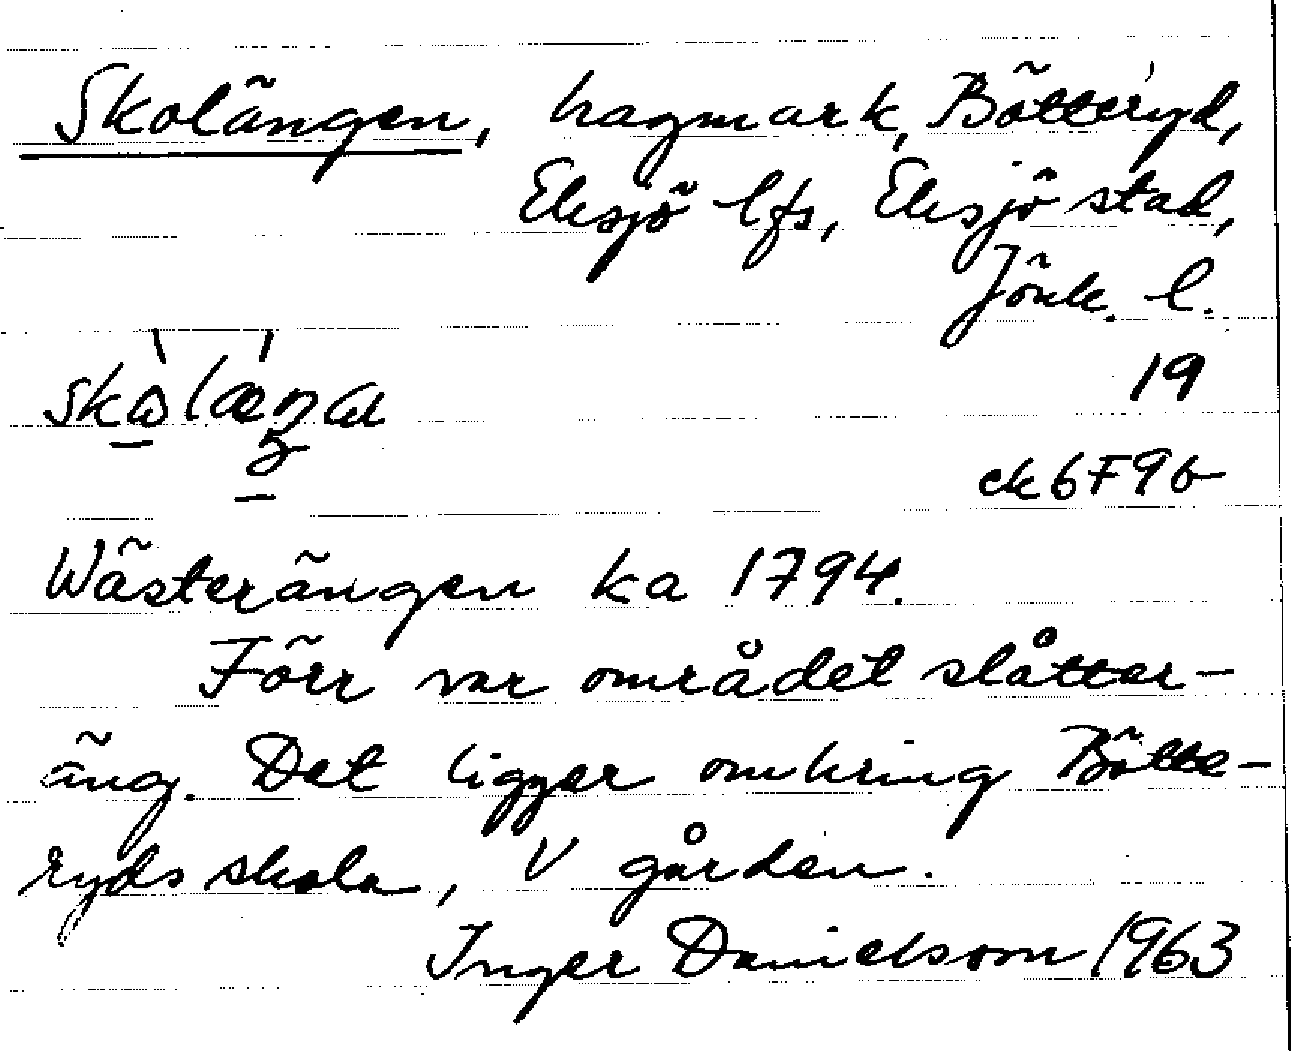 Skolängen, hagmark, Bötteryd,
Eksjö lfs, Eksjö stad,
Jönk. l.
19
ek 6F9b
Wästerängen ka 1794.
Förr var området slåtter-
äng. Det ligger omkring Bötte-
ryds skola, V gården.
Inger Danielsson 1963